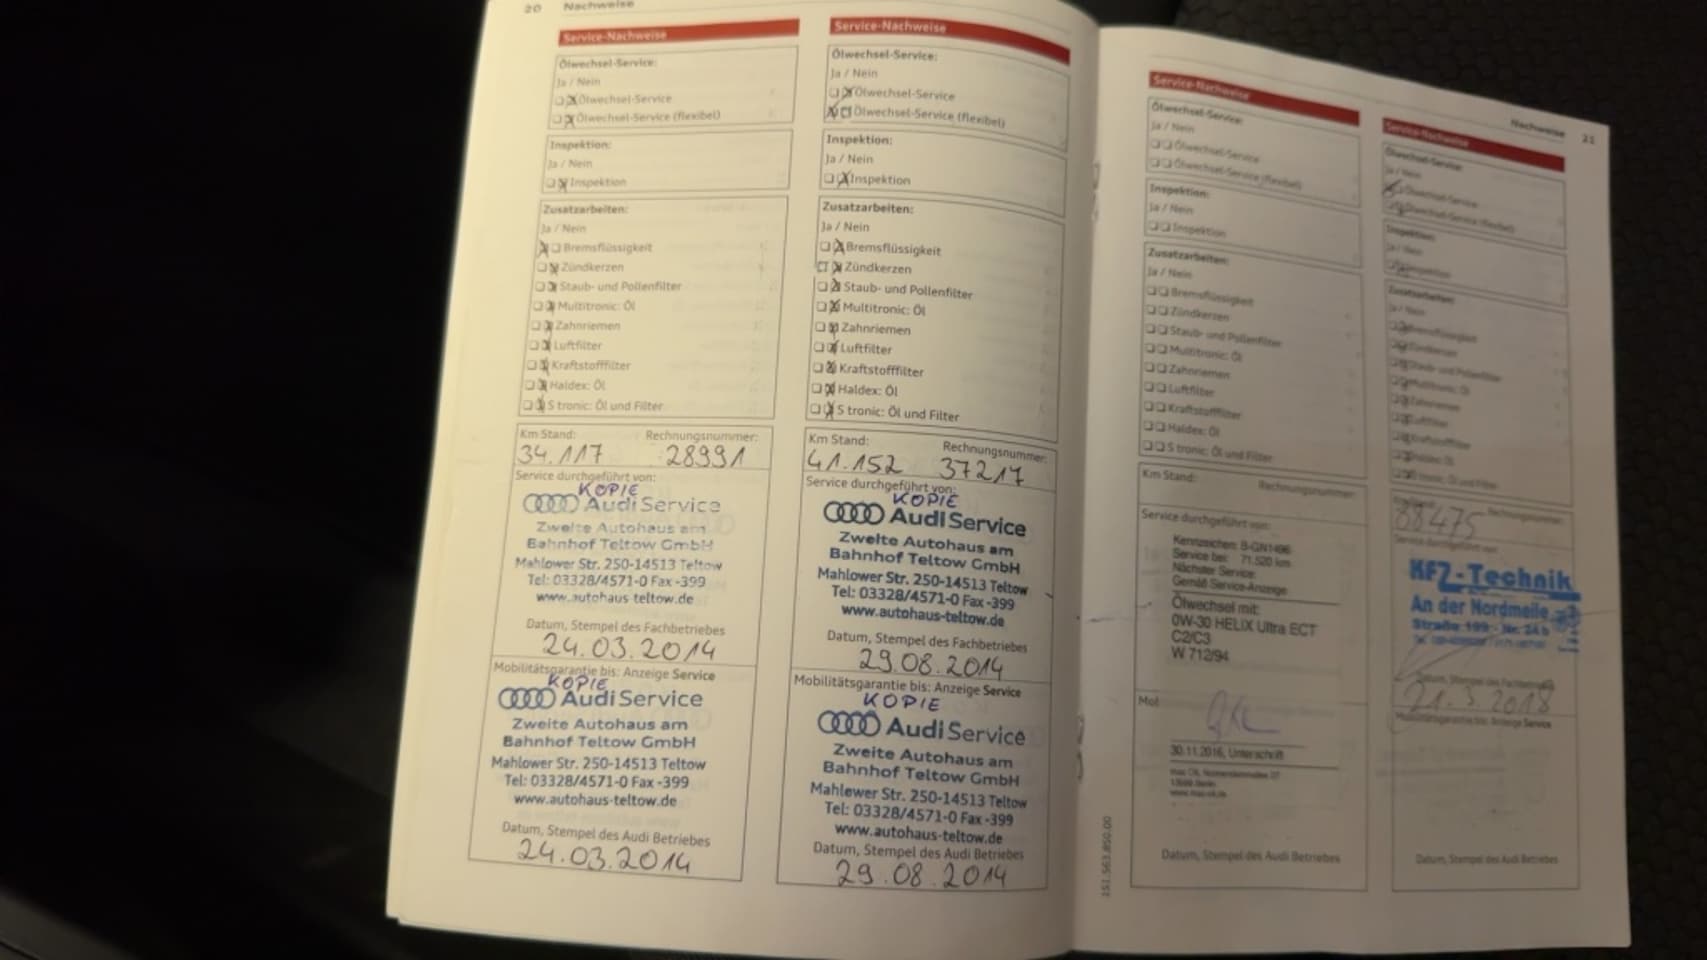 20 Nachweise
Service-Nachweise
Ölwechsel-Service:
Ja / Nein
Ölwechsel-Service
Ölwechsel-Service (flexibel)
Inspektion:
Ja / Nein
Inspektion
Zusatzarbeiten:
Ja / Nein
Bremsflüssigkeit
Zündkerzen
Staub- und Pollenfilter
Multitronic: Öl
Zahnriemen
Luftfilter
Kraftstofffilter
Haldex: Öl
S tronic: Öl und Filter
Km Stand: Rechnungsnummer:
34.117 28991
Service durchgeführt von:
KOPIE
Audi Service
Zweite Autohaus am
Bahnhof Teltow GmbH
Mahlower Str. 250-14513 Teltow
Tel: 03328/4571-0 Fax -399
www.autohaus-teltow.de
Datum, Stempel des Fachbetriebes
24.03.2014
Mobilitätsgarantie bis: Anzeige Service
KOPIE
Audi Service
Zweite Autohaus am
Bahnhof Teltow GmbH
Mahlower Str. 250-14513 Teltow
Tel: 03328/4571-0 Fax -399
www.autohaus-teltow.de
Datum, Stempel des Audi Betriebes
24.03.2014
Service-Nachweise
Ölwechsel-Service:
Ja / Nein
Ölwechsel-Service
Ölwechsel-Service (flexibel)
Inspektion:
Ja / Nein
Inspektion
Zusatzarbeiten:
Ja / Nein
Bremsflüssigkeit
Zündkerzen
Staub- und Pollenfilter
Multitronic: Öl
Zahnriemen
Luftfilter
Kraftstofffilter
Haldex: Öl
S tronic: Öl und Filter
Km Stand: Rechnungsnummer:
41.152 37217
Service durchgeführt von:
KOPIE
Audi Service
Zweite Autohaus am
Bahnhof Teltow GmbH
Mahlower Str. 250-14513 Teltow
Tel: 03328/4571-0 Fax -399
www.autohaus-teltow.de
Datum, Stempel des Fachbetriebes
29.08.2014
Mobilitätsgarantie bis: Anzeige Service
KOPIE
Audi Service
Zweite Autohaus am
Bahnhof Teltow GmbH
Mahlower Str. 250-14513 Teltow
Tel: 03328/4571-0 Fax -399
www.autohaus-teltow.de
Datum, Stempel des Audi Betriebes
29.08.2014
Nachweise 21
Service-Nachweise
Ölwechsel-Service:
Ja / Nein
Ölwechsel-Service
Ölwechsel-Service (flexibel)
Inspektion:
Ja / Nein
Inspektion
Zusatzarbeiten:
Ja / Nein
Bremsflüssigkeit
Zündkerzen
Staub- und Pollenfilter
Multitronic: Öl
Zahnriemen
Luftfilter
Kraftstofffilter
Haldex: Öl
S tronic: Öl und Filter
Km Stand: Rechnungsnummer:
Service durchgeführt von:
Kennzeichen: B-GN1496
Service bei: 71.520 km
Nächster Service:
Gemäß Service-Anzeige
Ölwechsel mit:
0W-30 HELIX Ultra ECT
C2/C3
W 712/94
Mol
30.11.2016, Unterschrift
Datum, Stempel des Audi Betriebes
151.563.850.00
Service-Nachweise
Ölwechsel-Service:
Ja / Nein
Ölwechsel-Service
Ölwechsel-Service (flexibel)
Inspektion:
Ja / Nein
Inspektion
Zusatzarbeiten:
Ja / Nein
Bremsflüssigkeit
Zündkerzen
Staub- und Pollenfilter
Multitronic: Öl
Zahnriemen
Luftfilter
Kraftstofffilter
Haldex: Öl
S tronic: Öl und Filter
Rechnungsnummer:
88475
Service durchgeführt von:
KFZ-Technik
An der Nordmeile
Straße 199 - Nr. 24 b
Datum, Stempel des Fachbetriebes
21.3.2018
Mobilitätsgarantie bis: Anzeige Service
Datum, Stempel des Audi Betriebes